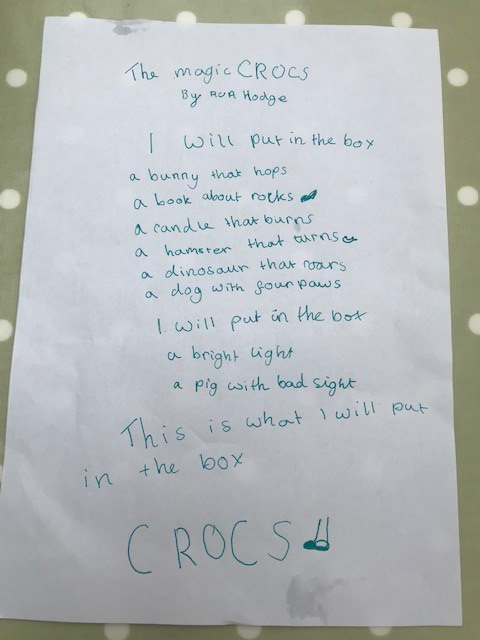 The magic CROCS
By AVA Hodge
I will put in the box
a bunny that hops
a book about rocks
a candle that burns
a hamster that turns
a dinosaur that roars
a dog with four paws
I will put in the box
a bright light
a pig with bad sight
This is what I will put
in the box
CROCS